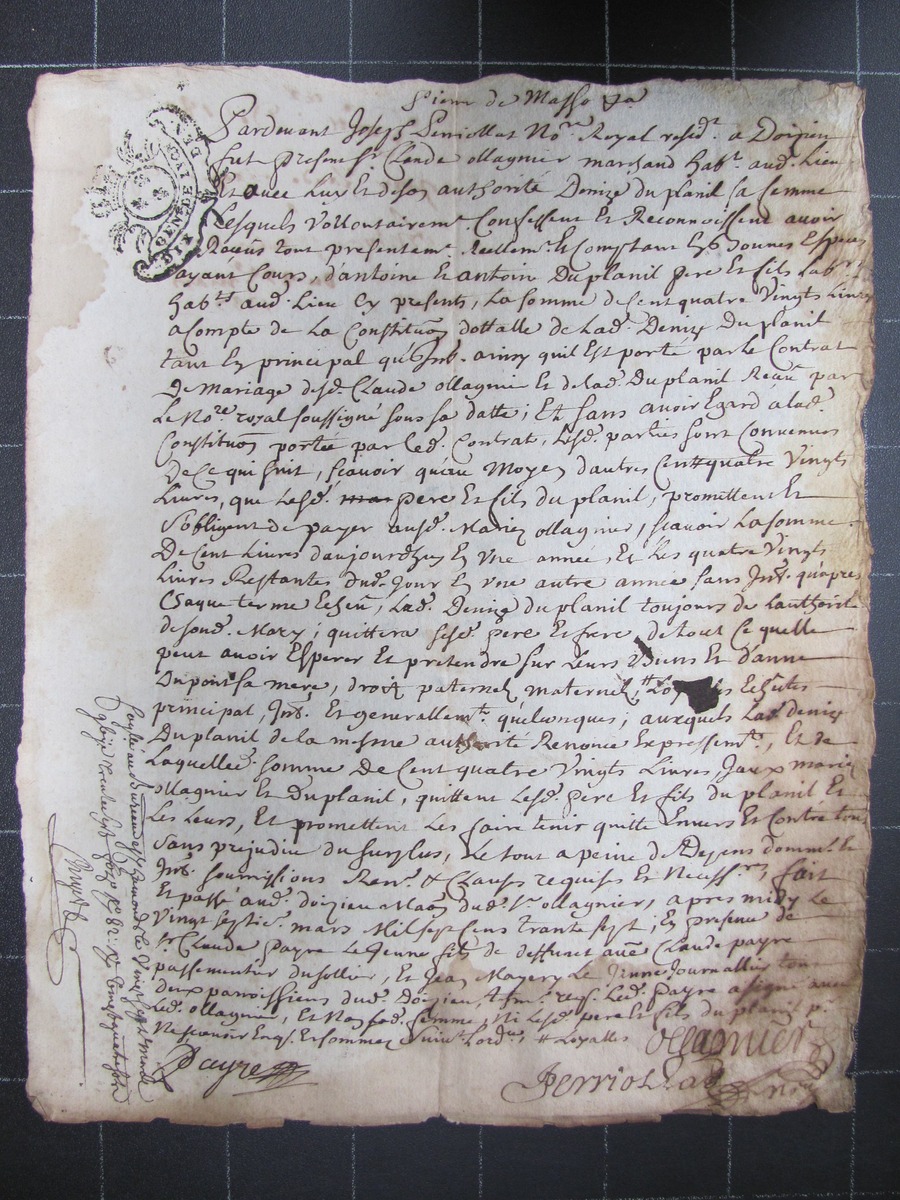 DIX DEN.
GEN. DE LYON
Pardevant Joseph Perriollat No.re Royal resid.t a Doizieu
fut present s.r Claude ollagnier marchand hab.t aud. Lieu
Et avec luy Et deson authorité Denize du planil sa femme
Lesquels Vollontairem.t Confessent Et Reconnoissent avoir
Receus tout presentem.t Reellem.t Et Comptant En bonnes Especes
ayant Cours, d'antoine Et antoine Du planil pere Et fils Lab.rs
hab.ts aud. Lieu Cy presents, La somme de Cent quatre Vingts Livres
a Compte de La Constitu͠on dottalle de Lad. Denize Du planil
tant En principal qu'Int. ainsy quil Est porté par Le Contrat
De Mariage desd. Claude ollagnier Et de lad. Du planil Receu par
Le No.re royal soussigné sous sa datte; Et sans avoir Egard a lad.
Constitu͠on portée par Led. Contrat, Lesd. parties sont Convenues
De Ce qui suit, scavoir qu'au Moyen d'autres Cent quatre Vingts
Livres, que Lesd. pere Et fils du planil, promettent Et
s'obligent de payer ausd. Mariez ollagnier, scavoir La somme
De Cent Livres d'aujourdhuy En Vne année, Et Les quatre Vingts
Livres Restantes dud. Jour En vne autre année sans Int. qu'apres
Chaque terme Echeu, Lad. Denize du planil toujours de Lauthorité
de sond. Mary; quittera sesd. pere Et frere de tout Ce quelle
peut avoir Esperer Et pretendre sur Leurs Biens Et d'anne
Dupont sa mere, droits paternel maternel, Echutes
principal, Int. Et generallem.t quelconques; auxquels Lad. denize
Du planil de la mesme authorité Renonce Expressem.t, Et de
Laquelle somme De Cent quatre Vingts Livres Iceux mariez
ollagnier Et Du planil, quittent Lesd. pere Et fils du planil Et
Les Leurs, Et promettent Les faire tenir quitte Envers Et Contre tous
Sans prejudice du surplus, Le tout a peine de Depens domm. Et
Int. soumissions Ren.on & Clauses requises Et Necess.res, fait
Et passé aud. doizieu Maison dud. s.r ollagnier, apres midy Le
Vingt septie. mars Mil sept Cens trante sept; En presence de
s.r Claude payre Le Jeune fils de deffunt Claude payre
passementier, Et Jean Le Jeune Journallier tous
deux paroissiens dud. Doizieu Led. payre a signé avec
Led. ollagnier, Et Non lad. femme, Ni Lesd. pere Et fils du planil p.r
Ne scavoir Enq. Et sommez Suiv.t Lord.ce # Loyalles
ollagnier
Payre
Perriollat no.re